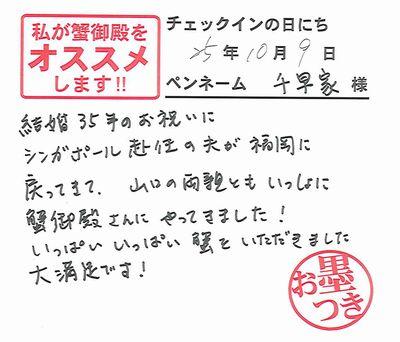 私が蟹御殿を
オススメ
します!!
チェックインの日にち
25年10月9日
ペンネーム 千早家 様
結婚35年のお祝いに
シンガポール赴任の夫が福岡に
戻ってきて、山口の両親ともいっしょに
蟹御殿さんにやってきました!
いっぱいいっぱい蟹をいただきました
大満足です!
お墨つき